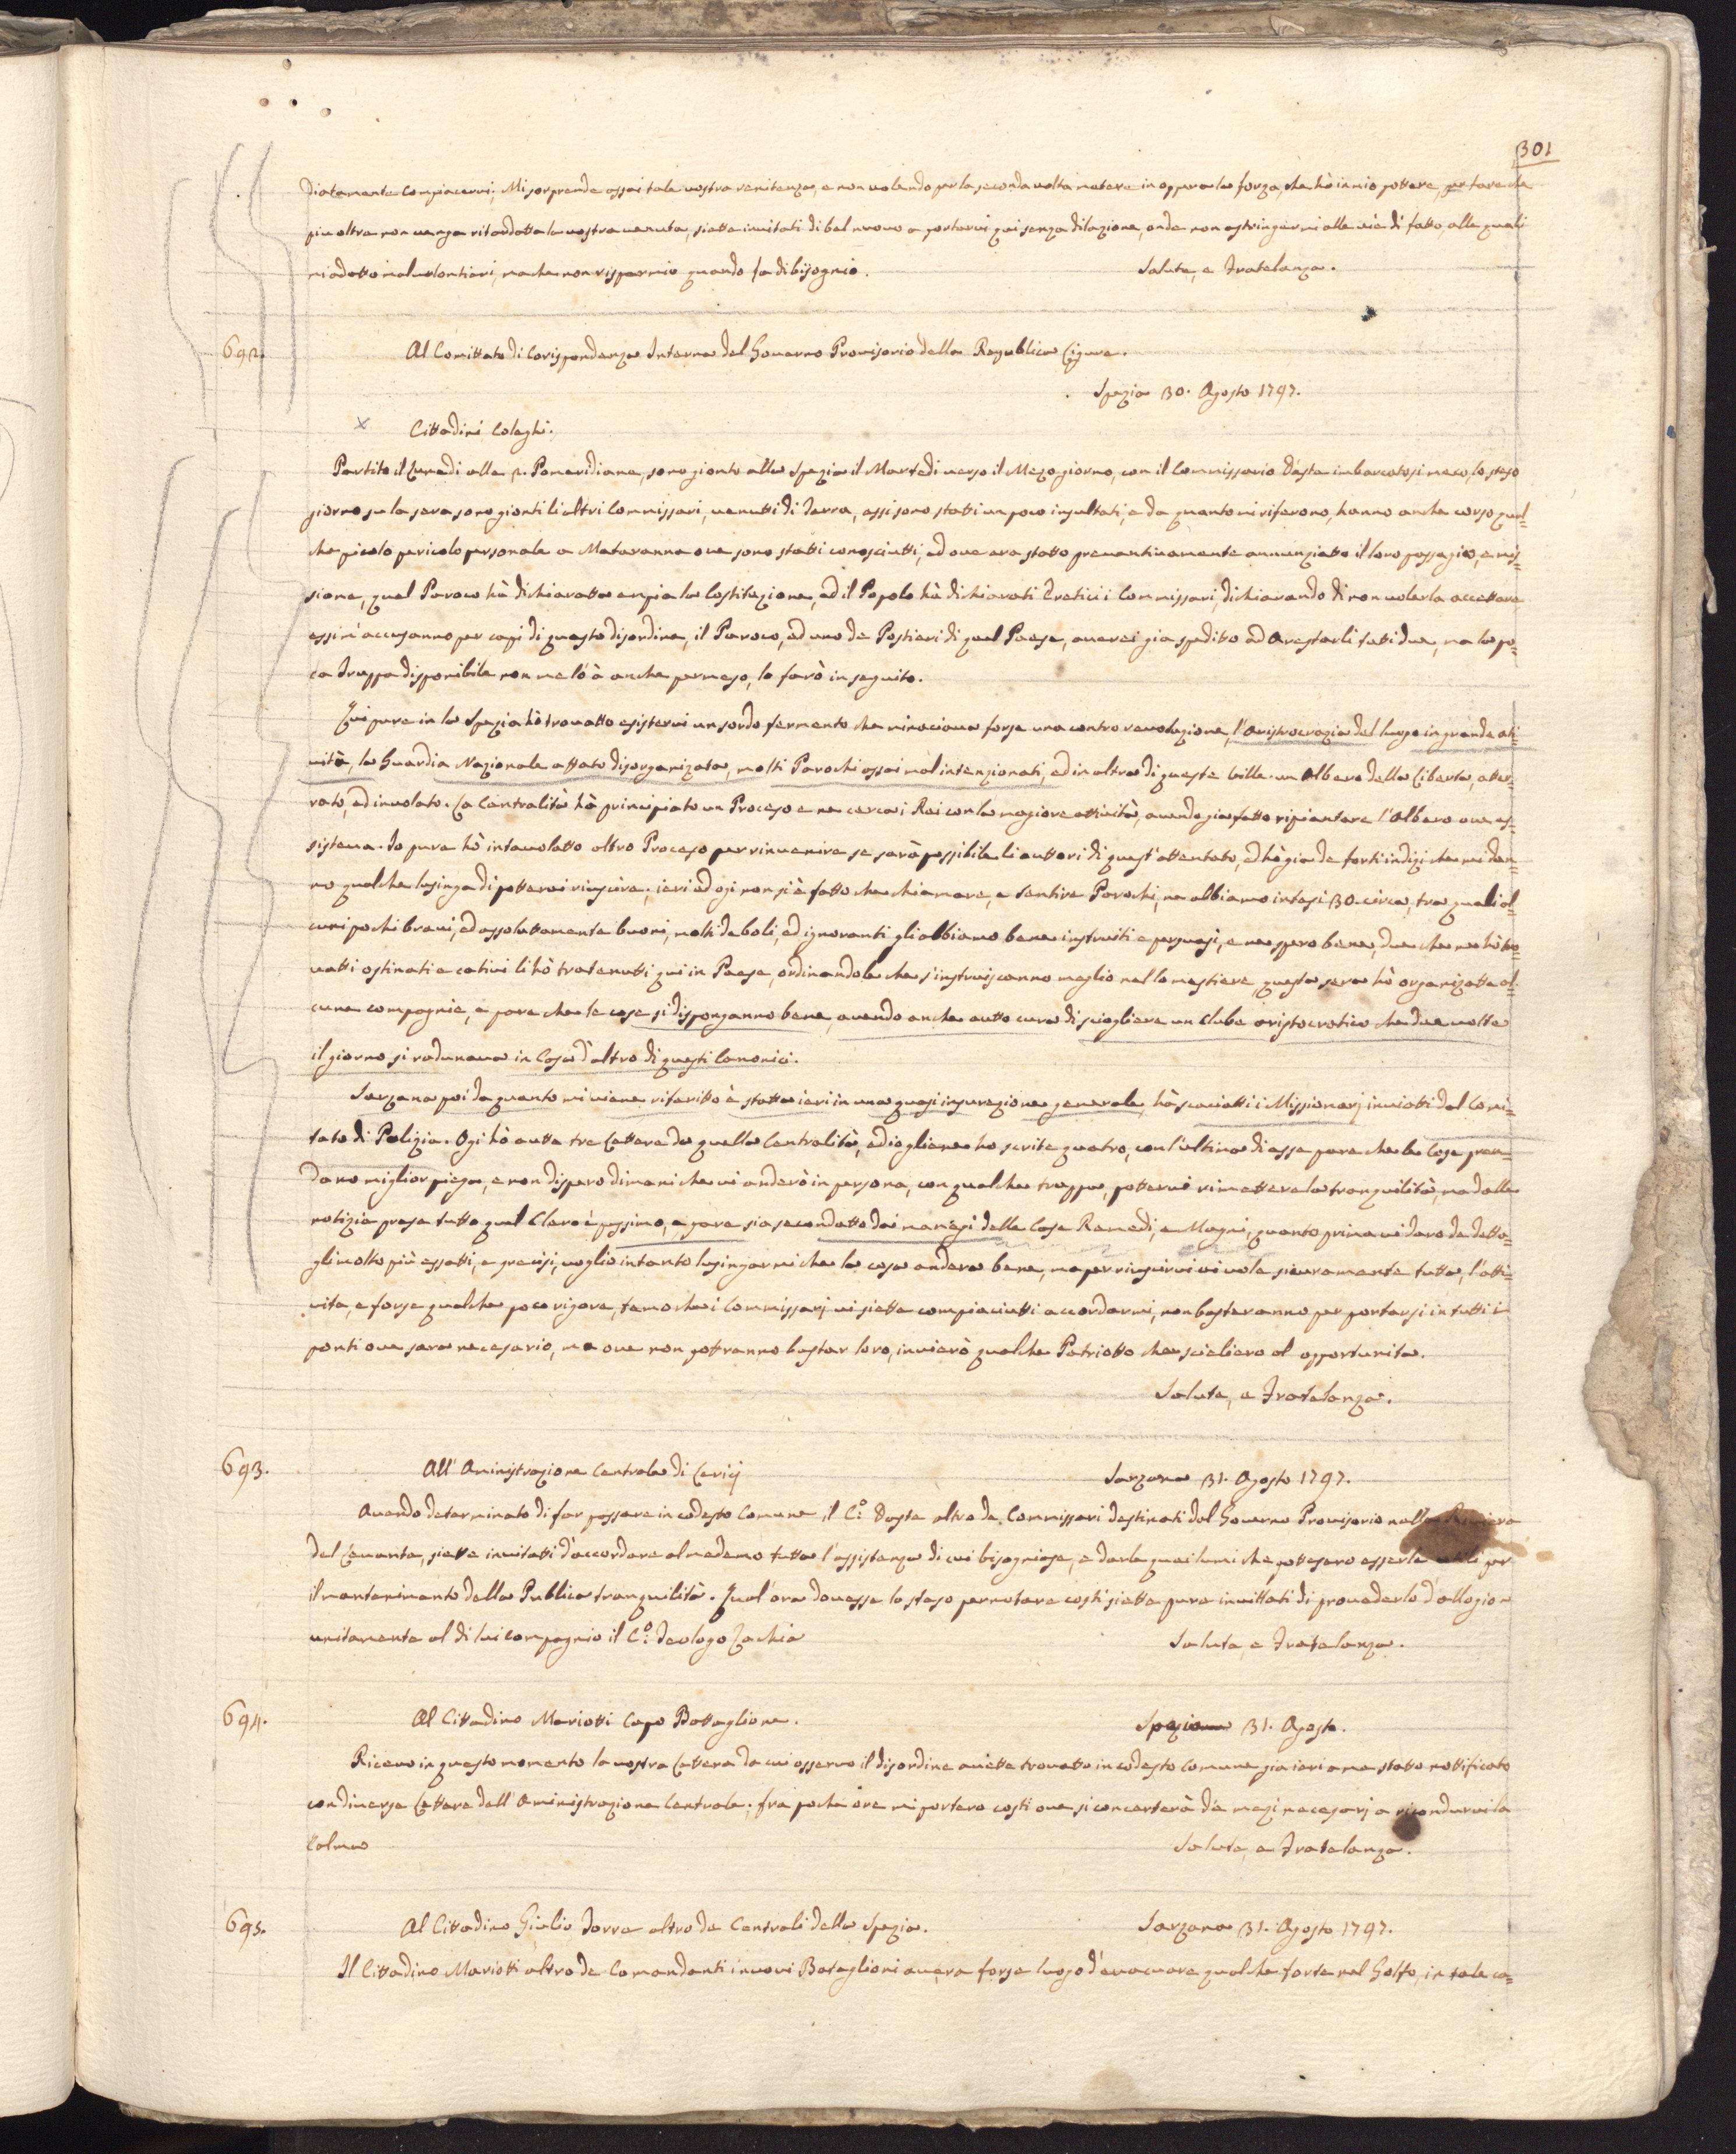 301
diatamente compiacervi; Mi sorprende assai tale vostra renitenza, e non volendo per la seconda volta metere in oppera la forza, che hò in mio pottere, per fare che
piu oltre non venga ritardatta la vostra venuta, siette invitati di bel nuovo a portarvi qui senza dilazione, onde non astringermi alle vie di fatto, alle quali
mi adatto malvolontieri, ma che non risparmio quando fa di bisognio. Salute, e Fratelanza.
692. Al Comittato di Corispondenza Interna del Governo Provisorio della Republica Ligure.
Spezia 30. Agosto 1797.
Cittadini Coleghi.
Partito il Lunedi alle 2. Pomeridiane, sono gionto alla Spezia il Martedi verso il Mezogiorno, con il Commissario d'Aste imbarcatosi meco, lo steso
giorno su la sera sono gionti li altri Commissari, venutti di Terra, essi sono statti un poco insultati, e da quanto mi riferono, hanno anche corso qual=
che picolo pericolo personale a Mataranna ove sono statti conosciutti, ed ove era statto preventivamente annunziatto il loro passagio, e mis=
sione, quel Paroco hà dichiaratta empia la Costituzione, ed il Popolo hà dichiarati Eretici i Commissari, dichiarando di non volerla accettare
essi m'accusanno per capi di questo disordine, il Paroco, ed uno de Postieri di quel Paese, averei gia spedito ad Arestarli tutti due, ma la po=
ca Truppa disponibile non me l'ò à anche permeso, lo farò in seguito.
Qui pure in la Spezia hò trovatto esistervi un sordo fermento che minaciava forse una contro revoluzione, l'Aristocrazia del luogo in grande ati=
vità, la Guardia Nazionale affato disorganizata, molti Parochi assai mal intenzionati, ed in altra di queste Ville un Albero della Libertà, atter=
rato, ed involato. La Centralità hà principiato un Proceso e ne cerca i Rei con la magiore attività, avendo gia fatto ripiantare l'Albero ove es=
sisteva. Io pure hò intavolatto altro Proceso per rinvenire se sarà possibile li auttori di quest'attentato, ed hò gia de forti indizi che mi dan=
no qualche lusinga di pottervi riuscire; ieri ed ogi non si è fatto che chiamare, e sentire Parochi, ne abbiamo intesi 30. circa, tra quali al=
cuni pochi bravi, ed assoluttamente buoni, molti deboli, ed ignoranti gli abbiamo bene instruiti e persuasi, e ne spero bene, due che ne hò tro=
vatti ostinati e cativi li hò tratenutti qui in Paese, ordinandole che s'instruiscanno meglio nel lo mestiere, questa sera hò organizatta al=
cune compagnie, e pare che le cose si disponganno bene, avendo anche autto cura di sciogliere un Clube aristocratico che due volte
il giorno si radunava in Casa d'altro di questi Canonici.
Sarzana poi da quanto mi viene riferitto è statta ieri in una quasi insurezione generale, hà scaciatti i Missionarj inviatti dal Comi=
tato di Polizia. Ogi hò autte tre Lettere da quella Centralità, ed io gliene ho scrite quatro, con l'ultima di esse pare che le Cose pren=
dano miglior piega, e non dispero dimani che vi anderò in persona, con qualche truppa, pottervi rimettere la tranquilità, ma dalle
notizie prese tutto quel Clero è pessimo, e pare sia secondatto dai manegi delle Case Remedi, e Magni, quanto prima vi daro de detta=
gli molto più essatti, e precisi, voglio intanto lusingarmi che la cosa andera bene, ma per riuscirvi vi vole sicuramente tutta, l'atti=
vita, e forse qualche poco rigore, temo che i Commissarj vi siette compiaciutti accordarmi, non basteranno per portarsi in tutti i
ponti ove sara necesario, ma ove non pottranno bastar loro, invierò qualche Patriotto che scieliero al opportunita.
Salute, e Fratelanza.
693. All' Aministrazione Centrale di Lerici Sarzana 31. Agosto 1797.
Avendo determinato di far passare in codesto Comune, il C.º Daste altro de Commissari destinati dal Governo Provisorio nella Riviera
del Levante, siette invitatti d'accordare al medemo tutta l'assistenza di cui bisogniase, e darle quei lumi che pottesero esserle utili per
il mantenimento della Publica tranquilità. Qual'ora dovesse lo steso pernotare costi siette pure invittati di provederlo d'allogio
unitamente al di lui compagnio il C.º Teologo Zachia Salute e Fratelanza.
694. Al Cittadino Mariotti Capo Battaglione. Spezia 31. Agosto.
Ricevo in questo momento la vostra Lettera da cui osservo il disordine avette trovatto in codesto Comune gia ieri a me statto nottificato
con diverse Lettere dell'Aministrazione Centrale; fra poche ore mi portero costi ove si concerterà de mezi necesarj a ricondurvi la
Calma Salute, e Fratelanza.
695. Al Cittadino Giulio Torre altro de Centrali della Spezia. Sarzana 31. Agosto 1797.
Il Cittadino Mariotti altro de Comandanti i nuovi Bataglioni avera forse luogo d'evacuare qualche forte nel Golfo, in tale ca=